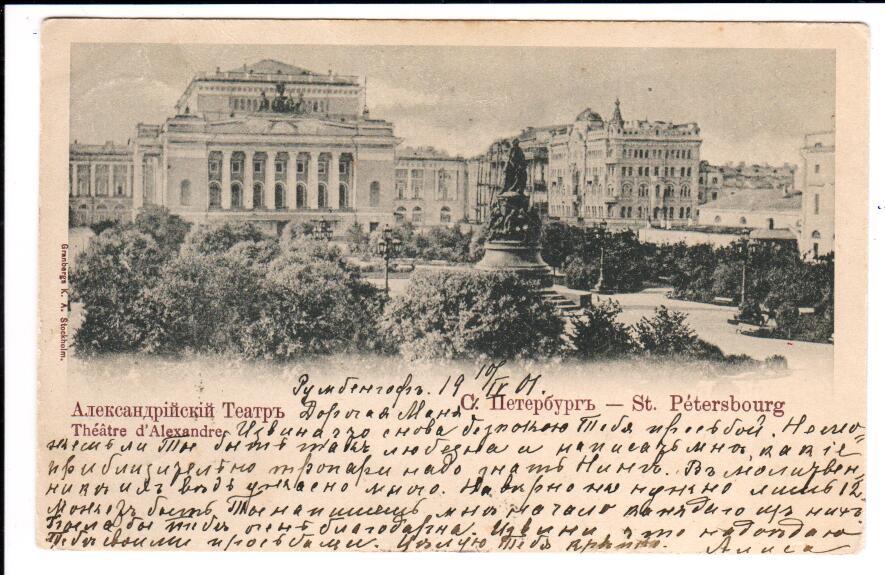 Granbergs K. A. Stockholm.
Румбенгофъ. 19 10/IV 01.
Александрійскій Театръ
С. Петербургъ — St. Pétersbourg
Théâtre d'Alexandre.
Дорогая Маня
Извини что снова безпокою Тебя просьбой. Не мо-
жешь ли Ты быть такъ любезна и написать мнѣ, какіе
приблизительно тропари надо знать Нинѣ. Въ молитвен-
никѣ ихъ вѣдь ужасно много. Навѣрно же нужно лишь 12.
Можетъ быть Ты напишешь мнѣ начало каждаго изъ нихъ
была бы тебѣ очень благодарна. Извини что надоѣдаю
Тебѣ своими просьбами. Цѣлую Тебя крѣпко.
Алиса